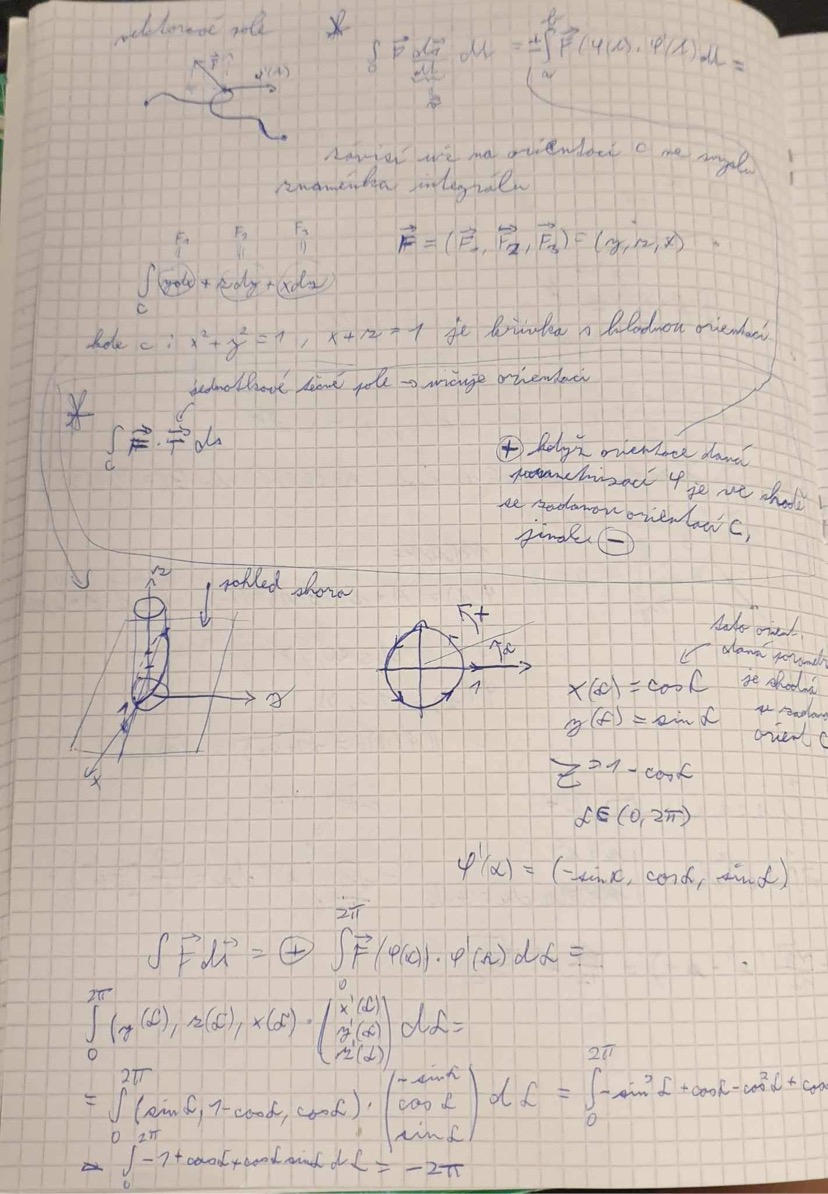 vektorové pole
∫_C F⃗ dr⃗/dt dt = ± ∫_a^b F⃗(φ(t)) · φ'(t) dt =
F⃗ φ'(t)
závisí vše na orientaci C ve smyslu
znaménka integrálu
F₁ F₂ F₃
F⃗ = (F⃗₁, F⃗₂, F⃗₃) = (y, z, x)
∫_C ydx + zdy + xdz
kde C : x² + y² = 1, x + z = 1 je křivka s kladnou orientací
jednotkové tečné pole → určuje orientaci
∫_C F⃗ · T⃗ ds
⊕ když orientace daná
parametrizací φ je ve shodě
se zadanou orientací C,
jinak ⊖
z
pohled shora
y
x
+
α
1
tato orient.
daná parametr
je shodná
se zadanou
orient C
x(α) = cos α
y(α) = sin α
z = 1 - cos α
α ∈ (0, 2π)
φ'(α) = (-sin α, cos α, sin α)
∫ F⃗ dr⃗ = ⊕ ∫_0^{2π} F⃗(φ(α)) · φ'(α) dα =
∫_0^{2π} (y(α), z(α), x(α) · (x'(α) y'(α) z'(α)) dα =
= ∫_0^{2π} (sin α, 1 - cos α, cos α) · (-sin α cos α sin α) dα = ∫_0^{2π} -sin² α + cos α - cos² α + cos
= ∫_0^{2π} -1 + cos α + cos α sin α dα = -2π